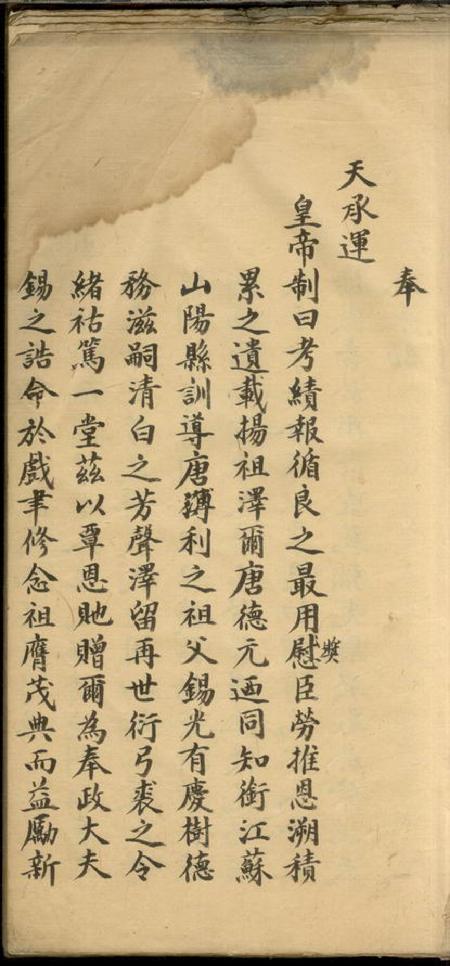 奉
天承運
皇帝制曰考績報循良之最用慰奬臣勞推恩溯積
累之遺載揚祖澤爾唐德元迺同知銜江蘇
山陽縣訓導唐利之祖父錫光有慶樹德
務滋嗣清白之芳聲澤留再世衍弓裘之令
緒祜篤一堂茲以覃恩貤贈爾為奉政大夫
錫之誥命於戲聿修念祖膺茂典而益勵新